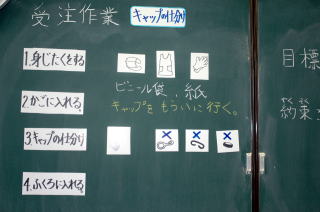 受注作業 キャップの仕分け
1.身じたくをする
ビニール袋、紙
2.かごに入れる。
キャップを もらいに行く。
3.キャップの仕分け
4.ふくろに入れる。
目標
約束